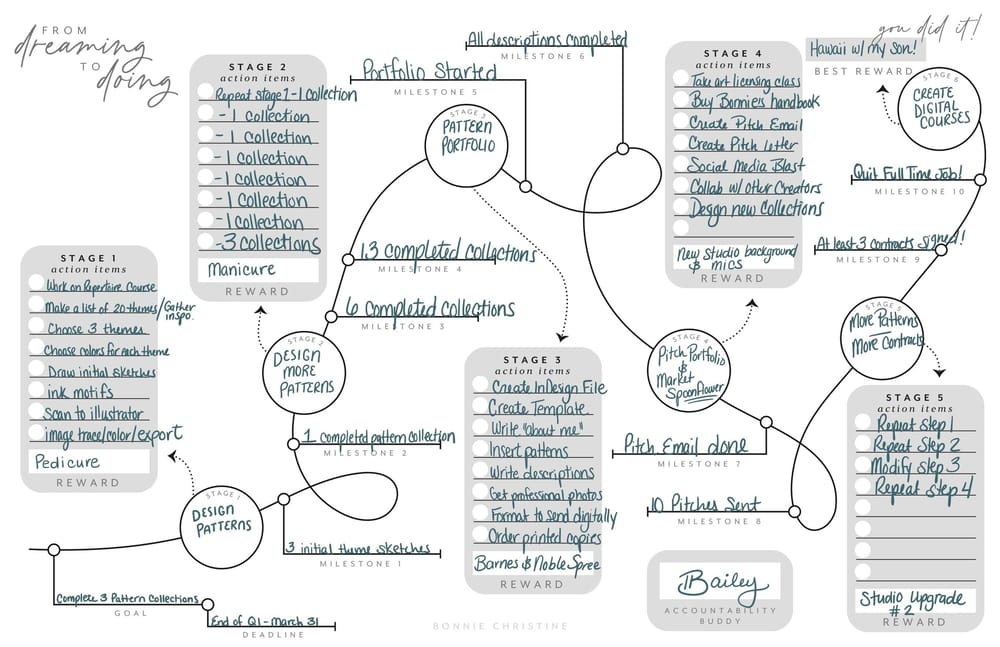 FROM
dreaming
TO
doing
STAGE 1
action items
Work on Repertoire Course
Make a list of 20 themes/Gather
inspo.
Choose 3 themes
Choose colors for each theme
Draw initial sketches
ink motifs
Scan to illustrator
image trace/color/export
Pedicure
REWARD
STAGE 1
DESIGN
PATTERNS
Complete 3 Pattern Collections
GOAL
End of Q1 - March 31
DEADLINE
3 initial theme sketches
MILESTONE 1
1 completed pattern collection
MILESTONE 2
STAGE 2
action items
Repeat stage 1 - 1 Collection
- 1 Collection
- 1 Collection
- 1 Collection
- 1 Collection
- 1 Collection
- 1 Collection
- 3 Collections
Manicure
REWARD
STAGE 2
DESIGN
MORE
PATTERNS
6 completed collections
MILESTONE 3
13 completed collections
MILESTONE 4
Portfolio Started
MILESTONE 5
All descriptions completed
MILESTONE 6
STAGE 3
PATTERN
PORTFOLIO
STAGE 3
action items
Create InDesign File
Create Template
Write "about me"
Insert patterns
Write descriptions
Get professional photos
Format to send digitally
Order printed copies
Barnes & Noble Spree
REWARD
STAGE 4
action items
Take art licensing class
Buy Bonnie's handbook
Create Pitch Email
Create Pitch letter
Social Media Blast
Collab w/ other Creators
Design new Collections
New Studio background
& mics
REWARD
STAGE 4
Pitch Portfolio
&
Market
Spoonflower
Pitch Email done
MILESTONE 7
10 Pitches Sent
MILESTONE 8
STAGE 5
More Patterns
More Contracts
STAGE 5
action items
Repeat Step 1
Repeat Step 2
Modify Step 3
Repeat Step 4
Studio Upgrade
#2
REWARD
At least 3 contracts signed!
MILESTONE 9
Quit Full Time Job!
MILESTONE 10
STAGE 6
CREATE
DIGITAL
COURSES
you did it!
Hawaii w/ my Son!
BEST REWARD
Bailey
ACCOUNTABILITY
BUDDY
BONNIE CHRISTINE